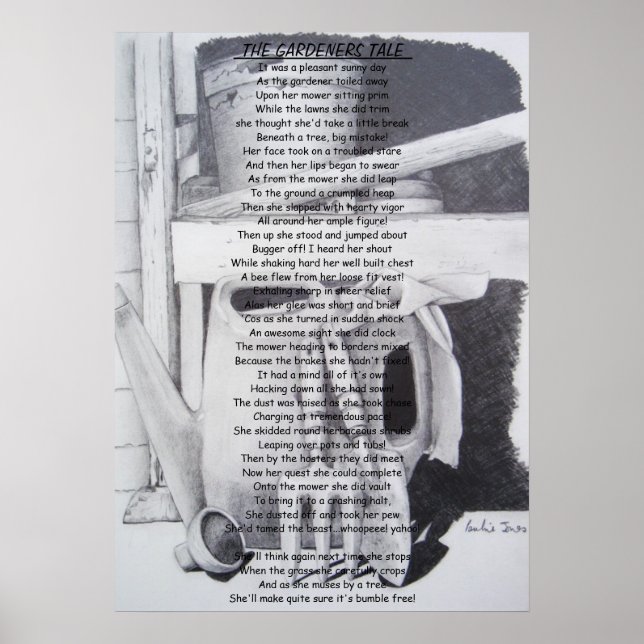 THE GARDENERS TALE
It was a pleasant sunny day
As the gardener toiled away
Upon her mower sitting prim
While the lawns she did trim
she thought she'd take a little break
Beneath a tree, big mistake!
Her face took on a troubled stare
And then her lips began to swear
As from the mower she did leap
To the ground a crumpled heap
Then she slapped with hearty vigor
All around her ample figure!
Then up she stood and jumped about
Bugger off! I heard her shout
While shaking hard her well built chest
A bee flew from her loose fit vest!
Exhaling sharp in sheer relief
Alas her glee was short and brief
'Cos as she turned in sudden shock
An awesome sight she did clock
The mower heading to borders mixed
Because the brakes she hadn't fixed!
It had a mind all of it's own
Hacking down all she had sown!
The dust was raised as she took chase
Charging at tremendous pace!
She skidded round herbaceous shrubs
Leaping over pots and tubs!
Then by the hosters they did meet
Now her quest she could complete
Onto the mower she did vault
To bring it to a crashing halt,
She dusted off and took her pew
She'd tamed the beast...whoopeee! yahoo!
She'll think again next time she stops
When the grass she carefully crops
And as she muses by a tree
She'll make quite sure it's bumble free!
Pauline Jones